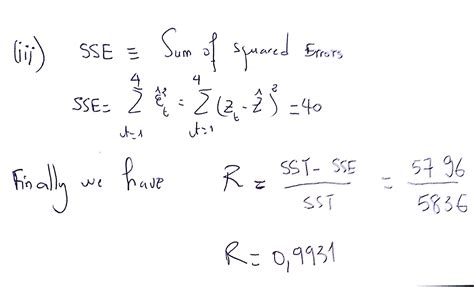 (iij) SSE ≡ Sum of squared Errors
SSE = ∑_{t=1}^{4} ε̂_t² = ∑_{t=1}^{4} (z_t - ẑ)² = 40
Finally we have R = (SST - SSE)/SST = 5796/5836
R = 0,9931